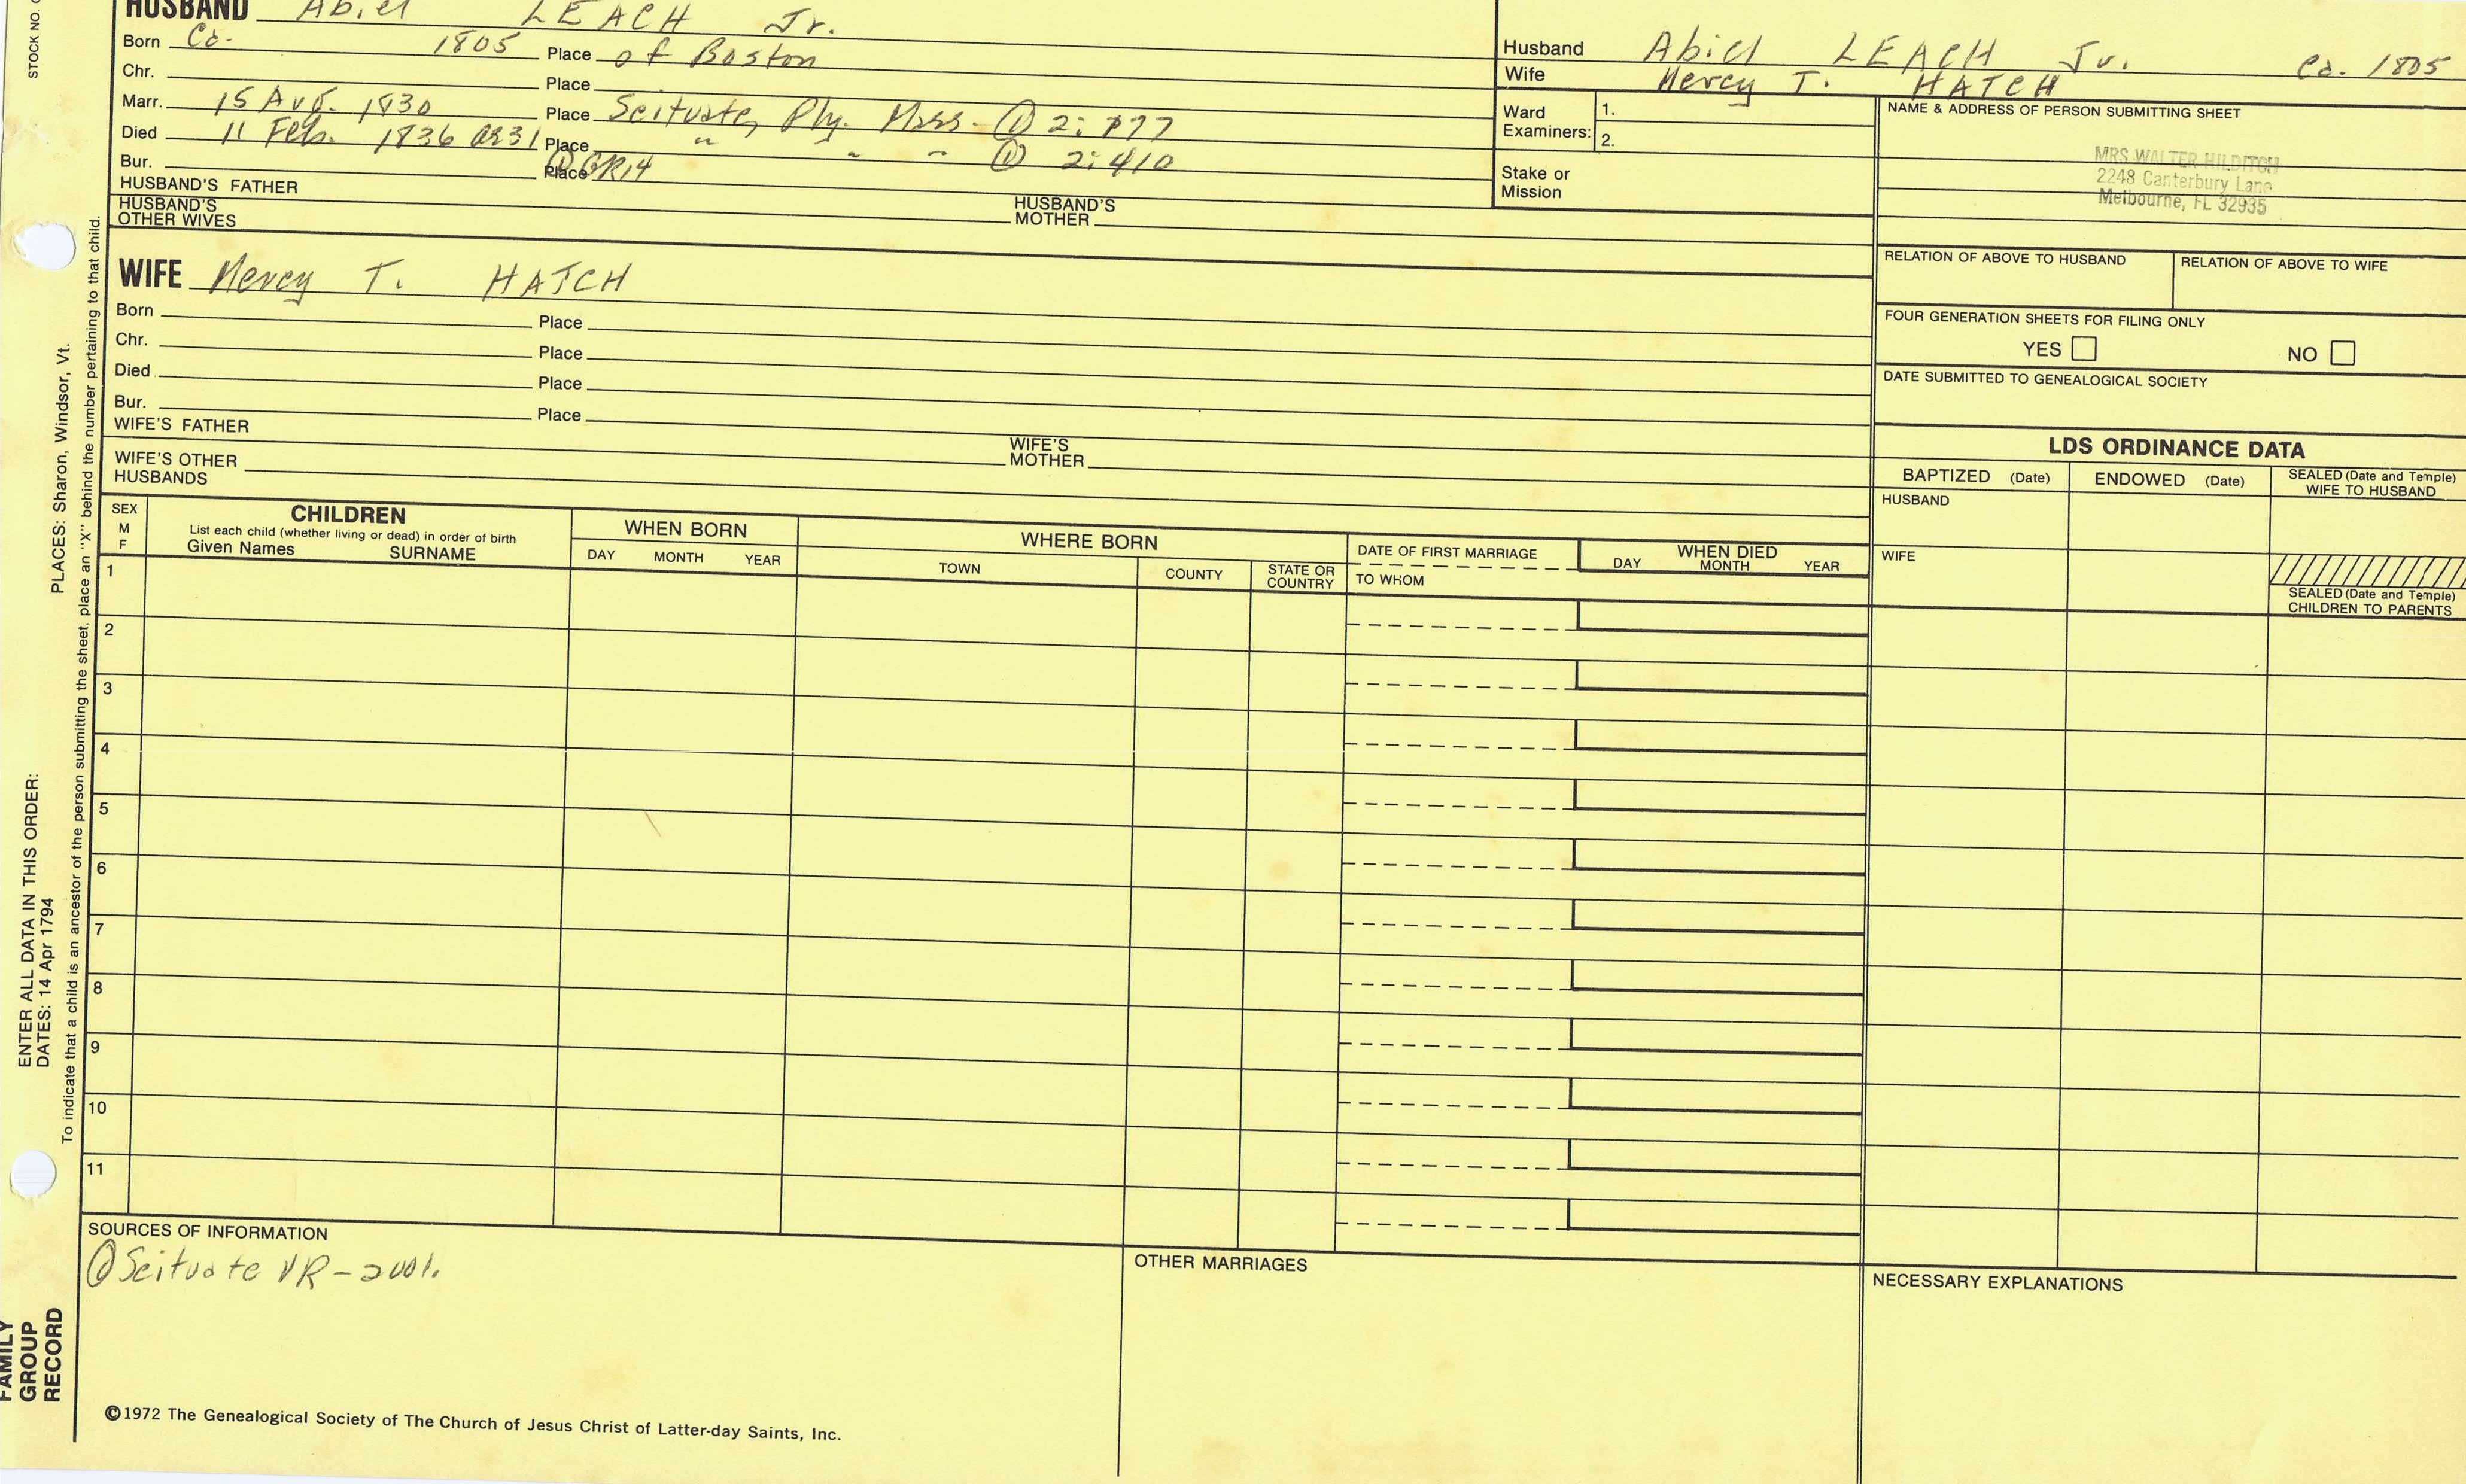 HUSBAND Abiel LEACH Jr.
Born Ca. 1805 Place of Boston
Chr. Place
Marr. 15 Aug. 1830 Place Scituate, Ply. Mass. ① 2:177
Died 11 Feb. 1836 ae31 Place " " " ① 2:410
Bur. Place ① GR14
HUSBAND'S FATHER
HUSBAND'S MOTHER
HUSBAND'S OTHER WIVES
Husband Abiel LEACH Jr. Ca. 1805
Wife Mercy T. HATCH
Ward Examiners: 1.
2.
Stake or Mission
NAME & ADDRESS OF PERSON SUBMITTING SHEET
MRS WALTER HILDITCH
2248 Canterbury Lane
Melbourne, FL 32935
RELATION OF ABOVE TO HUSBAND
RELATION OF ABOVE TO WIFE
FOUR GENERATION SHEETS FOR FILING ONLY
YES NO
DATE SUBMITTED TO GENEALOGICAL SOCIETY
WIFE Mercy T. HATCH
Born Place
Chr. Place
Died Place
Bur. Place
WIFE'S FATHER
WIFE'S MOTHER
WIFE'S OTHER HUSBANDS
LDS ORDINANCE DATA
BAPTIZED (Date)
ENDOWED (Date)
SEALED (Date and Temple)
WIFE TO HUSBAND
HUSBAND
WIFE
SEALED (Date and Temple)
CHILDREN TO PARENTS
SEX
M
F
CHILDREN
List each child (whether living or dead) in order of birth
Given Names SURNAME
WHEN BORN
DAY MONTH YEAR
WHERE BORN
TOWN
COUNTY
STATE OR COUNTRY
DATE OF FIRST MARRIAGE
TO WHOM
WHEN DIED
DAY MONTH YEAR
1
2
3
4
5
6
7
8
9
10
11
SOURCES OF INFORMATION
① Scituate VR-2vol.
OTHER MARRIAGES
NECESSARY EXPLANATIONS
©1972 The Genealogical Society of The Church of Jesus Christ of Latter-day Saints, Inc.
STOCK NO.
ENTER ALL DATA IN THIS ORDER:
DATES: 14 Apr 1794 PLACES: Sharon, Windsor, Vt.
To indicate that a child is an ancestor of the person submitting the sheet, place an "X" behind the number pertaining to that child.
FAMILY
GROUP
RECORD